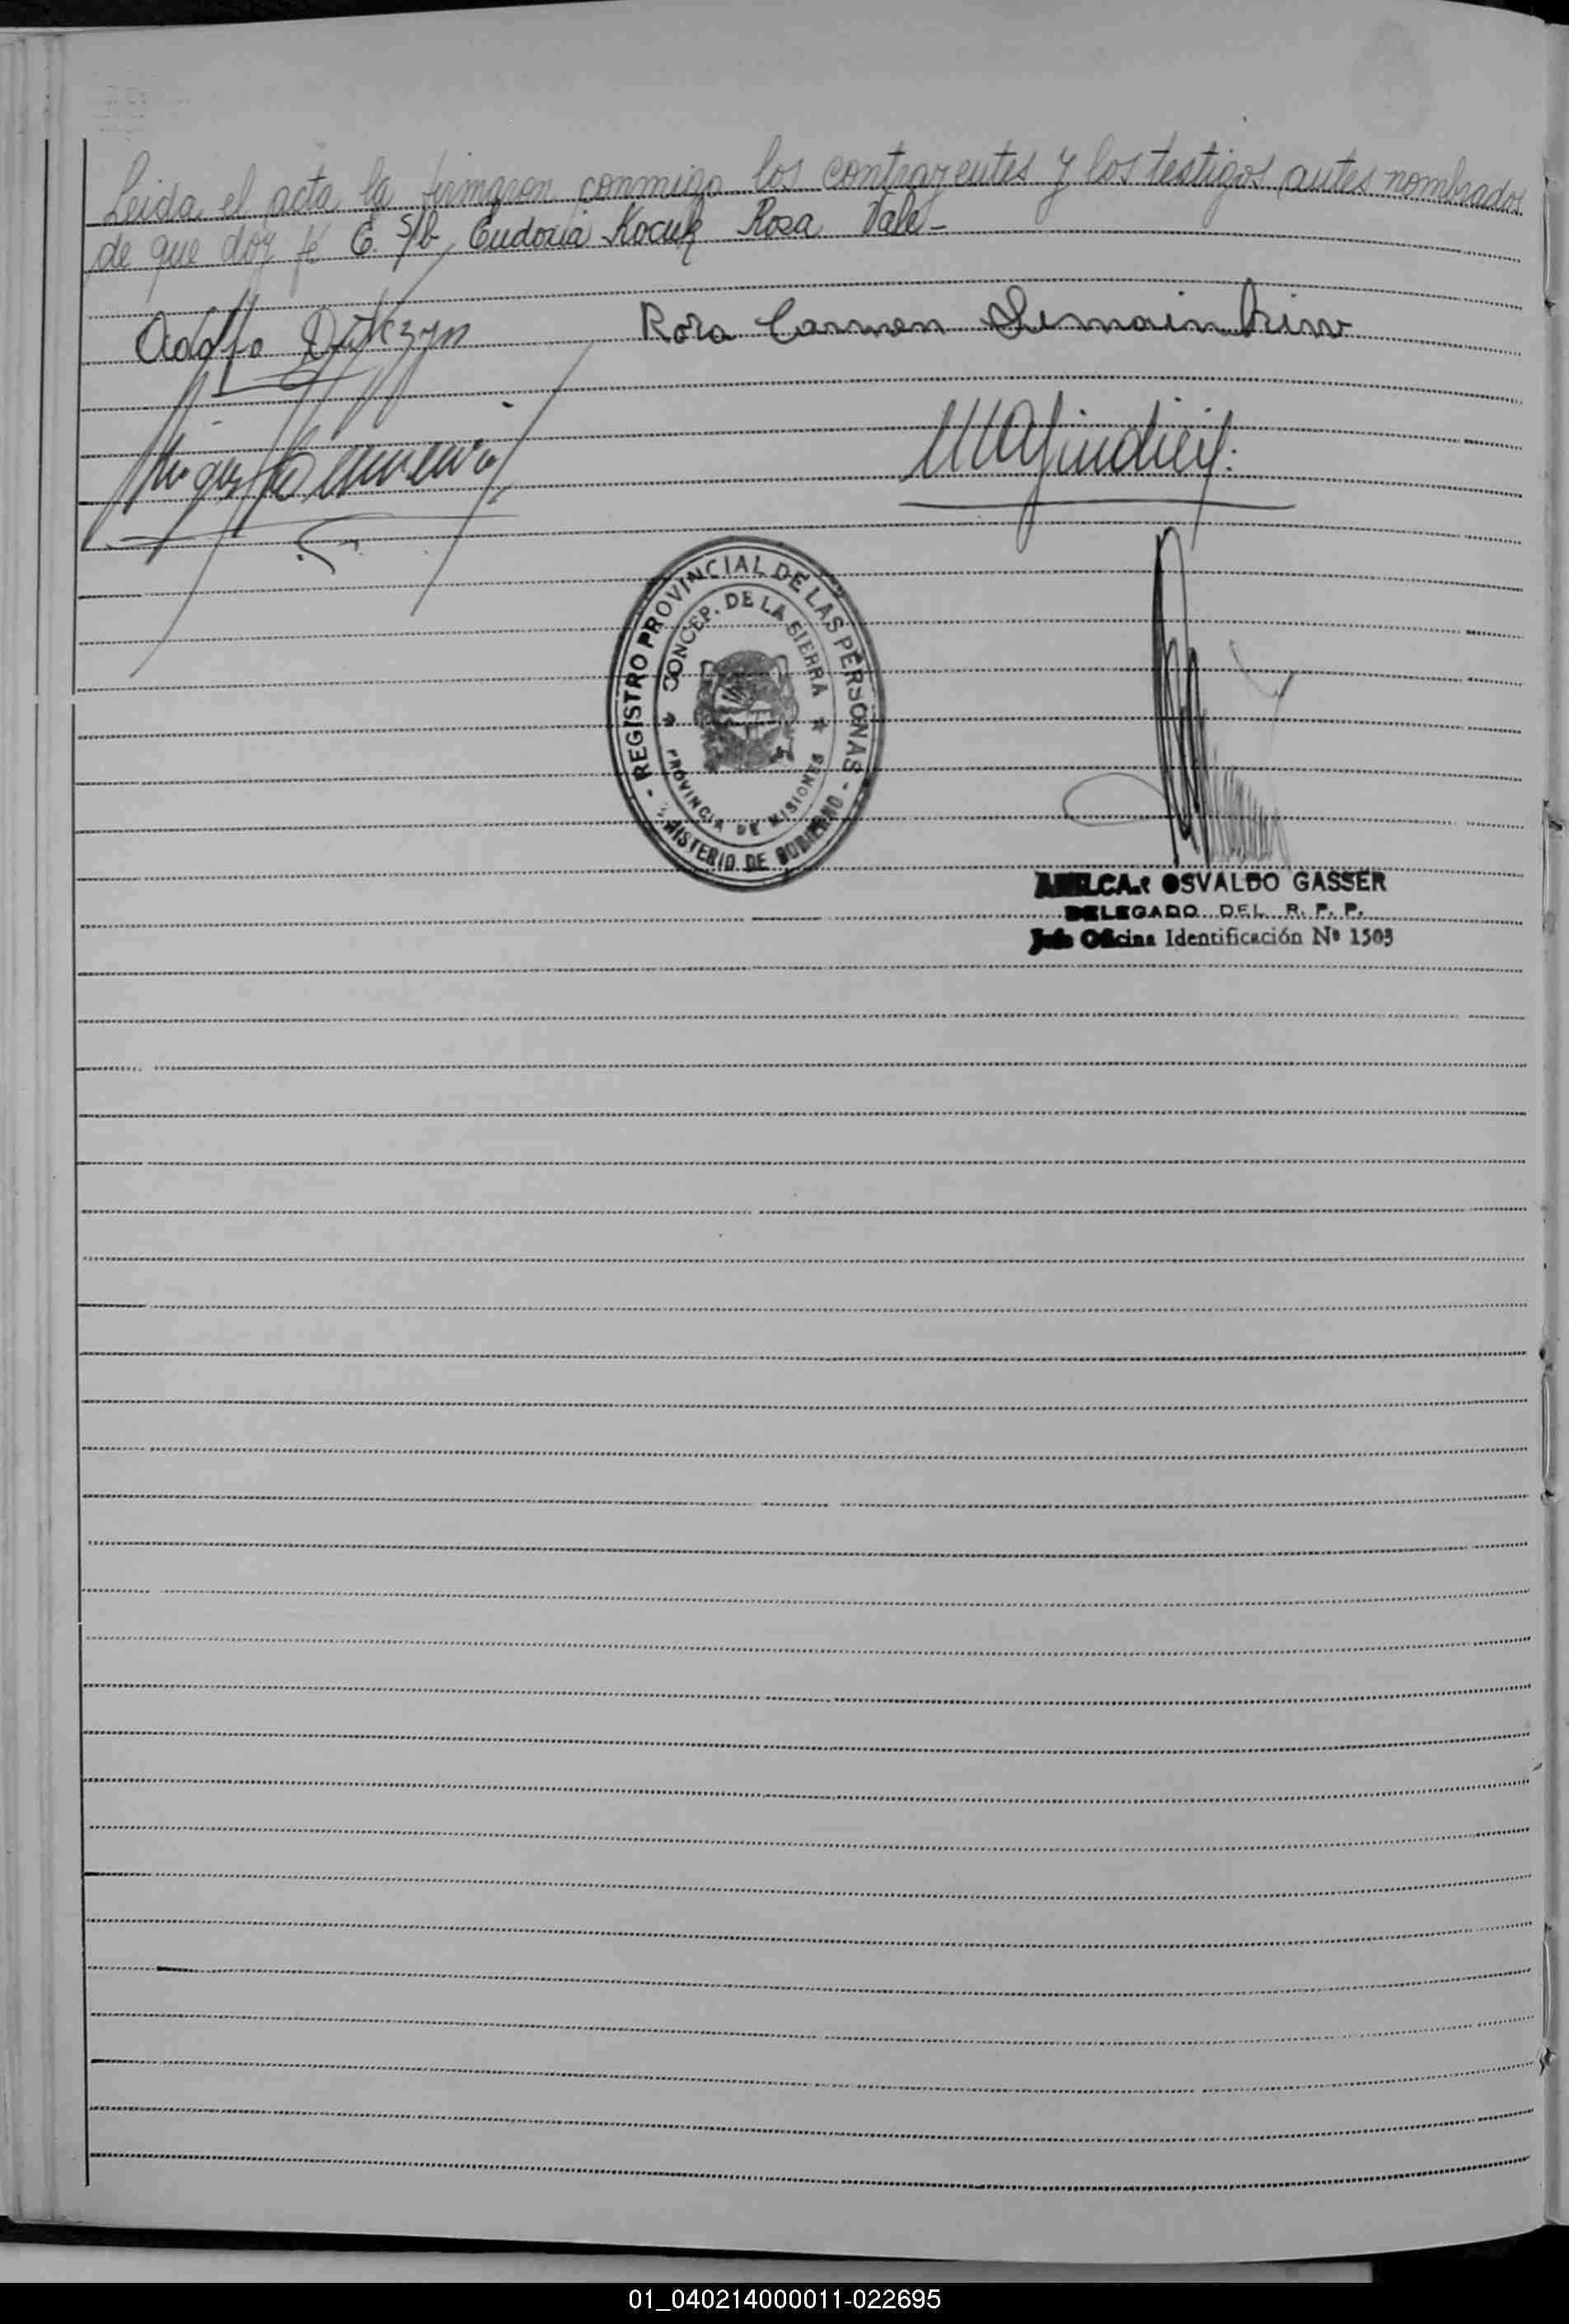 Leida el acta la firmaron conmigo los contrayentes y los testigos antes nombrados
de que doy fé E. S/b Eudoxia Kocuk Rosa Vale-
Adolfo Rosa Carmen
REGISTRO PROVINCIAL DE LAS PERSONAS
CONCEP. DE LA SIERRA
PROVINCIA DE MISIONES
- MINISTERIO DE GOBIERNO -
AMILCAR OSVALDO GASSER
DELEGADO DEL R. P. P.
Jefe Oficina Identificación Nº 1503
01_040214000011-022695